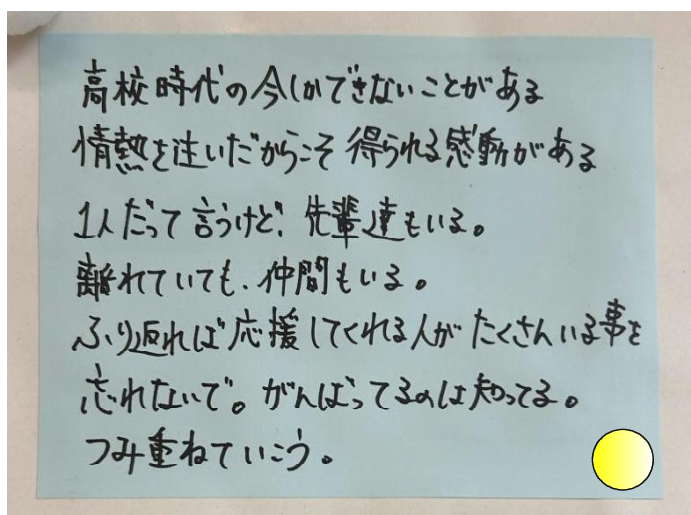 高校時代の今しかできないことがある
情熱を注いだからこそ得られる感動がある
1人だって言うけど、先輩達もいる。
離れていても、仲間もいる。
ふり返れば応援してくれる人がたくさんいる事を
忘れないで。がんばってるのは知ってる。
つみ重ねていこう。